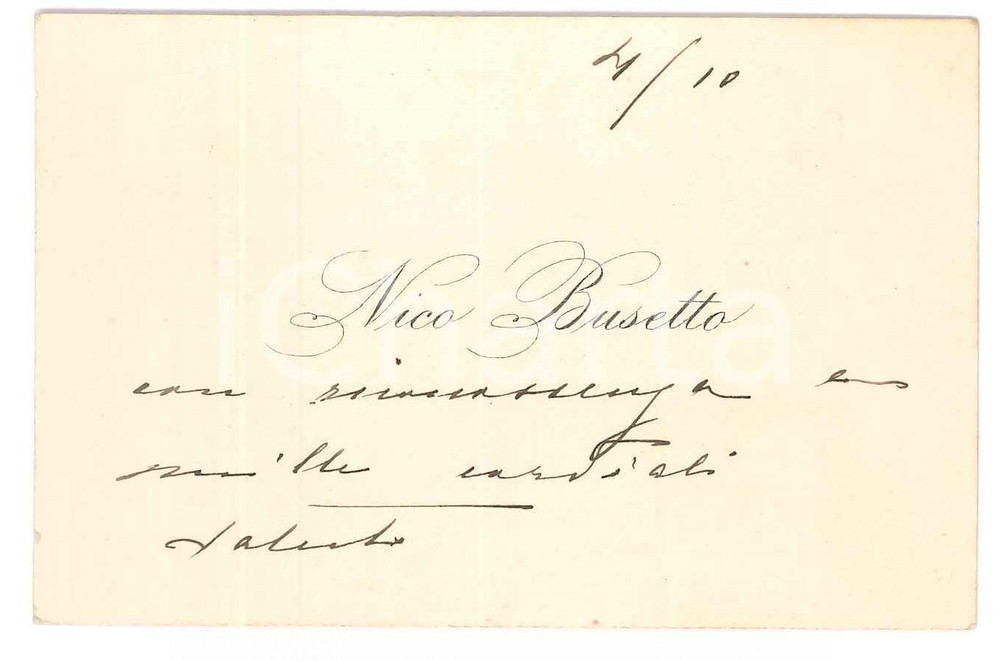 4/10
Nico Busetto
con riconoscenza e
mille cordiali
saluti